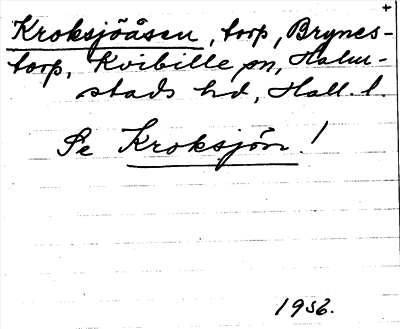 +
Kroksjöåsen, torp, Brynes-
torp, Kvibille sn, Halm-
stads hd, Hall. l.
Se Kroksjön!
1936.